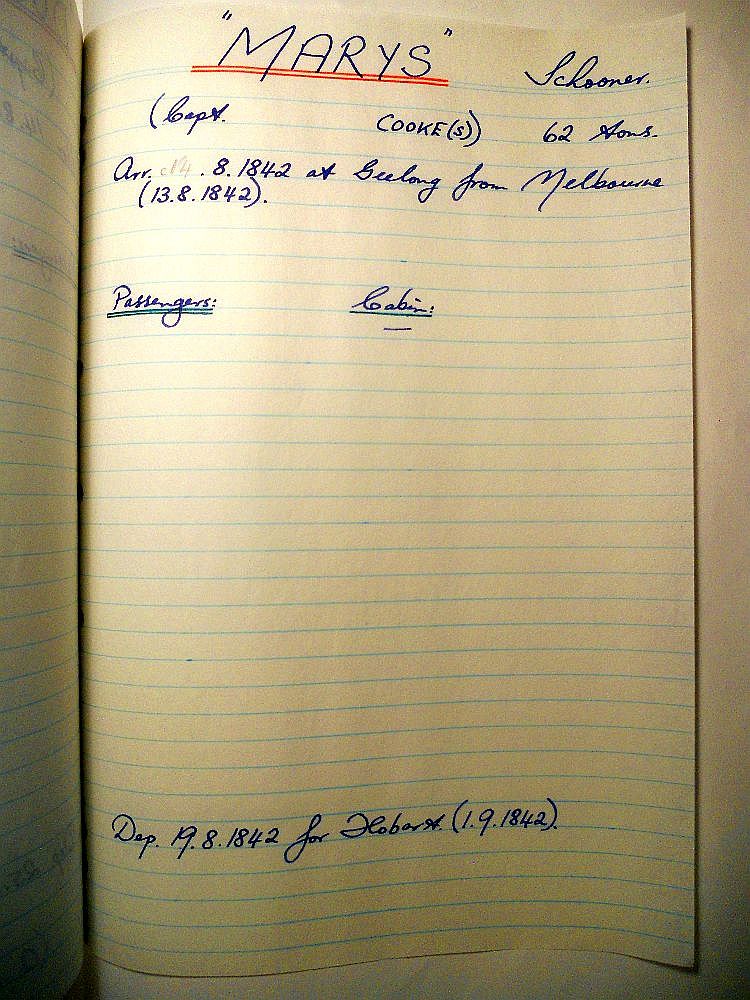 "MARYS" Schooner.
(Capt. COOKE(S)) 62 tons.
Arr. .8.1842 at Geelong from Melbourne
(13.8.1842).
Passengers: Cabin:
—
Dep. 19.8.1842 for Hobart. (1.9.1842).